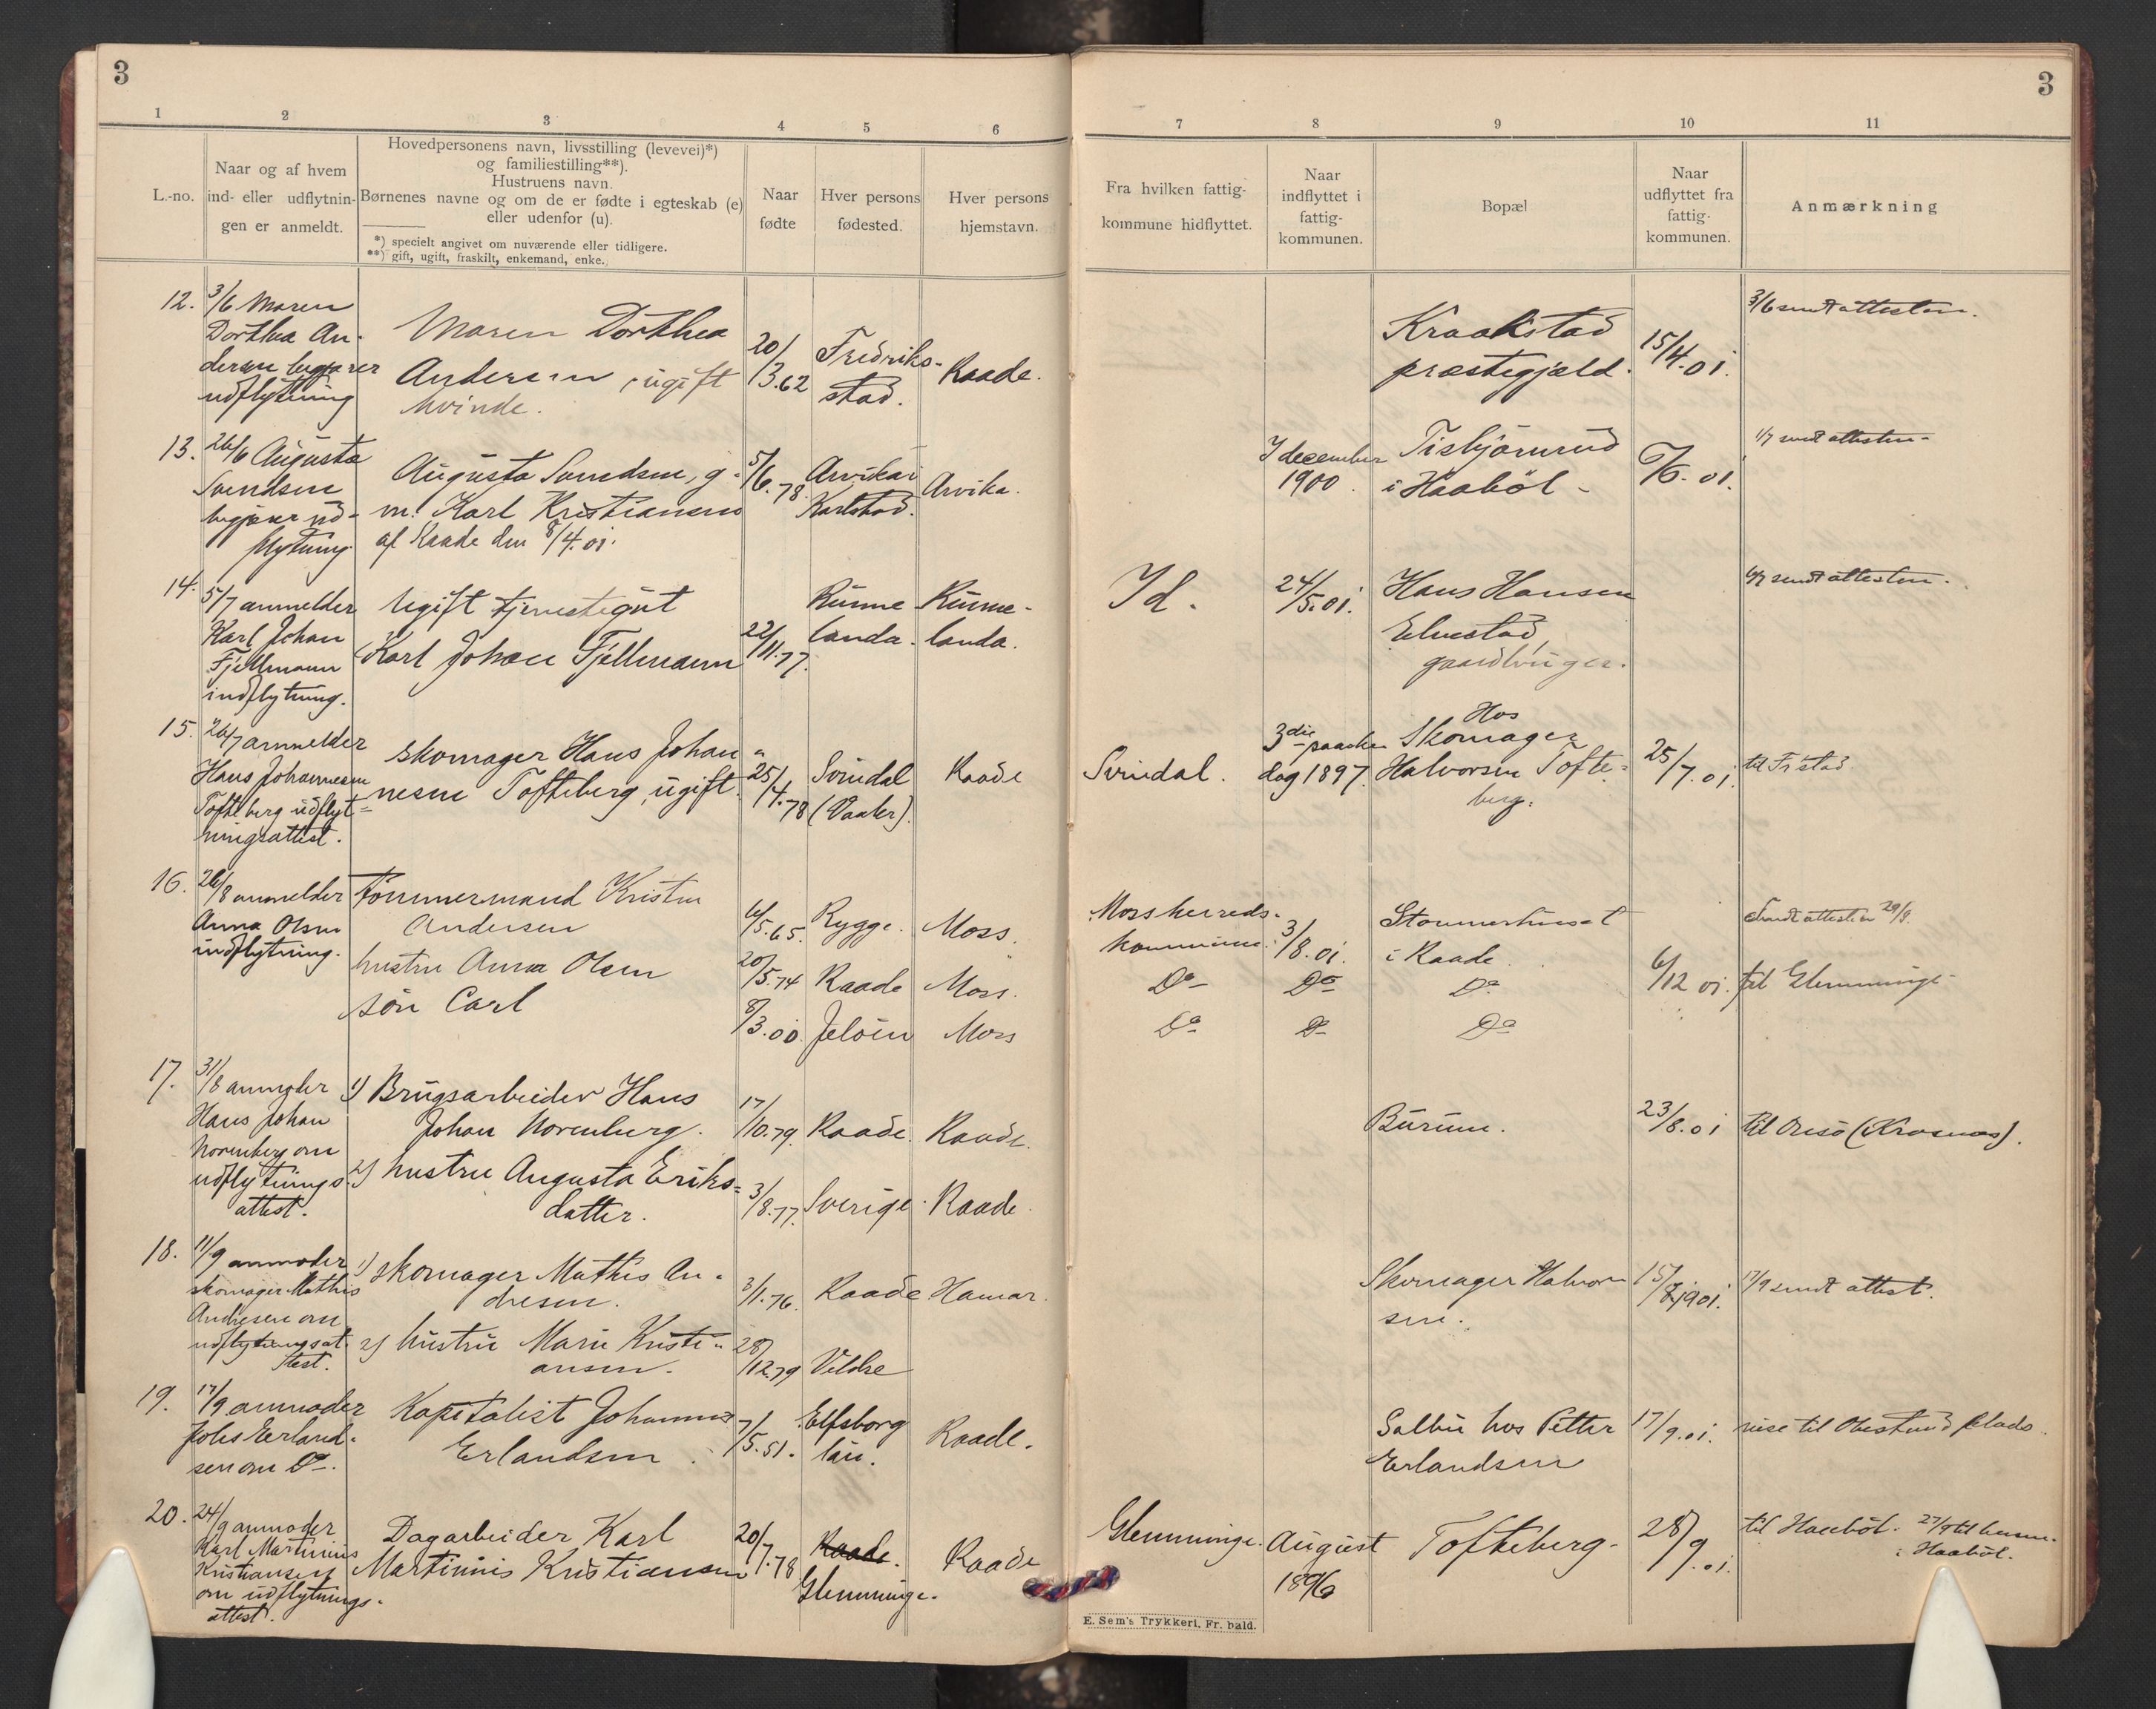 3
3
1
2
3
4
5
6
7
8
9
10
11
L.-no.
Naar og af hvem
ind- eller udflytnin-
gen er anmeldt.
Hovedpersonens navn, livsstilling (levevei)*)
og familiestilling**).
Hustruens navn.
Børnenes navne og om de er fødte i egteskab (e)
eller udenfor (u).
*) specielt angivet om nuværende eller tidligere.
**) gift, ugift, fraskilt, enkemand, enke.
Naar
fødte
Hver persons
fødested.
Hver persons
hjemstavn.
Fra hvilken fattig-
kommune hidflyttet.
Naar
indflyttet i
fattig-
kommunen.
Bopæl
Naar
udflyttet fra
fattig-
kommunen.
Anmærkning
12.
3/6 Maren
Dorthea An-
dersen begjærer
udflytning
Maren Dorthea
Andersen, ugift
kvinde.
20/3.62
Fredrik-
stad.
Raade.
Kraakstad
præstegjæld.
15/4.01.
3/6 sendt attesten.
13.
26/6 Augusta
Svendsen
begjærer ud-
flytning.
Augusta Svendsen, g.
m. Karl Kristiansen
af Raade den 8/4.01.
5/6.78
Arvika i
Karlstad.
Arvika.
I december
1900.
Tisbjørnrud
i Haabøl -
/6.01.
1/7 sendt attesten -
14.
5/7 anmelder
Karl Johan
Fjellmann
indflytning.
Ugift tjenestegut
Karl Johan Fjellmann
22/11.77.
Rünne
landa.
Rünne-
landa.
Id.
24/5.01.
Hans Hansen
Elvestad,
gaardbruger.
sendt attesten.
15.
24/7 anmelder
Hans Johannesen
Tofteberg udflyt-
ningsattest.
skomager Hans Johan-
nesen Tofteberg, ugift.
25/4.78
Svindal
(Vaaler).
Raade
Svindal.
3die paaske
dag 1897.
Hos
Skomager
Halvorsen Tofte-
berg.
25/7.01.
til Fr stad
16.
26/8 anmelder
Anna Olsen
indflytning.
Tømmermand Kristen
Andersen
hustru Anna Olsen
søn Carl
6/5.65.
20/5.74
8/3.00.
Rygge.
Raade
Jeløen
Moss.
Moss.
Moss
Moss herreds-
kommune.
Do
Do
3/8.01.
Do
Do
i Raade.
Do
Do
6/12 01.
Sendt attesten 29/8.
til Glemminge
17.
31/8 anmoder
Hans Johan
Norenberg om
udflytnings-
attest.
1) Brugsarbeider Hans
Johan Norenberg.
2) hustru Augusta Eriks-
datter.
17/10.79.
3/8.77.
Raade.
Sverige.
Raade.
Raade.
Burum.
23/8.01
til Onsø (Krosnæs).
18.
11/9 anmoder
skomager Mathis
Andresen om
udflytningsat-
test.
1) skomager Mathis An-
dresen.
2) hustru Marie Kristi-
ansen.
3/1.76.
28/12.79
Raade
Veldre
Hamar.
Skomager Halvor
sen.
15/8.1901.
17/9 sendt attest.
19.
17/9 anmoder
Johs Erland-
sen om Do.
Kapitalist Johannes
Erlandsen.
7/5.51.
Elfsborg
län.
Raade.
Salbu hos Petter
Erlandsen
17/9.01.
reise til plads.
20.
24/9 anmoder
Karl Martinius
Kristiansen
om udflytnings-
attest.
Dagarbeider Karl
Martinius Kristiansen
20/7.78
Raade.
Glemminge.
Raade
Glemminge.
August
1896
Tofteberg.
28/9.01.
til Haabøl.
27/9 til
i Haabøl.
E. Sem's Trykkeri, Fr. hald.